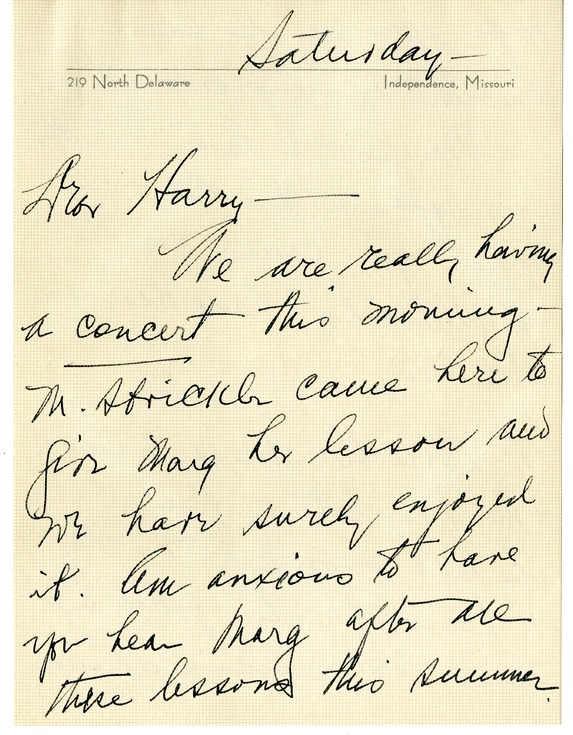 Saturday—
219 North Delaware Independence, Missouri
Dear Harry—
We are really having
a concert this morning—
M. Strickler came here to
give Marg her lesson and
we have surely enjoyed
it. Am anxious to have
you hear Marg after all
these lessons this summer.